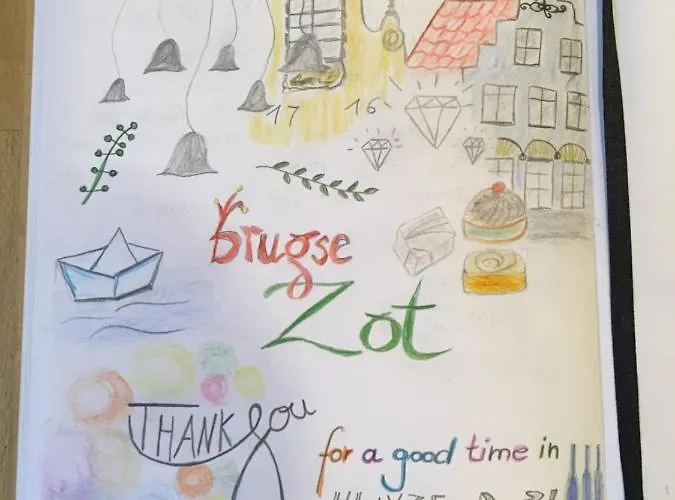 17 16
Brugse
Zot
THANK you
for a good time in